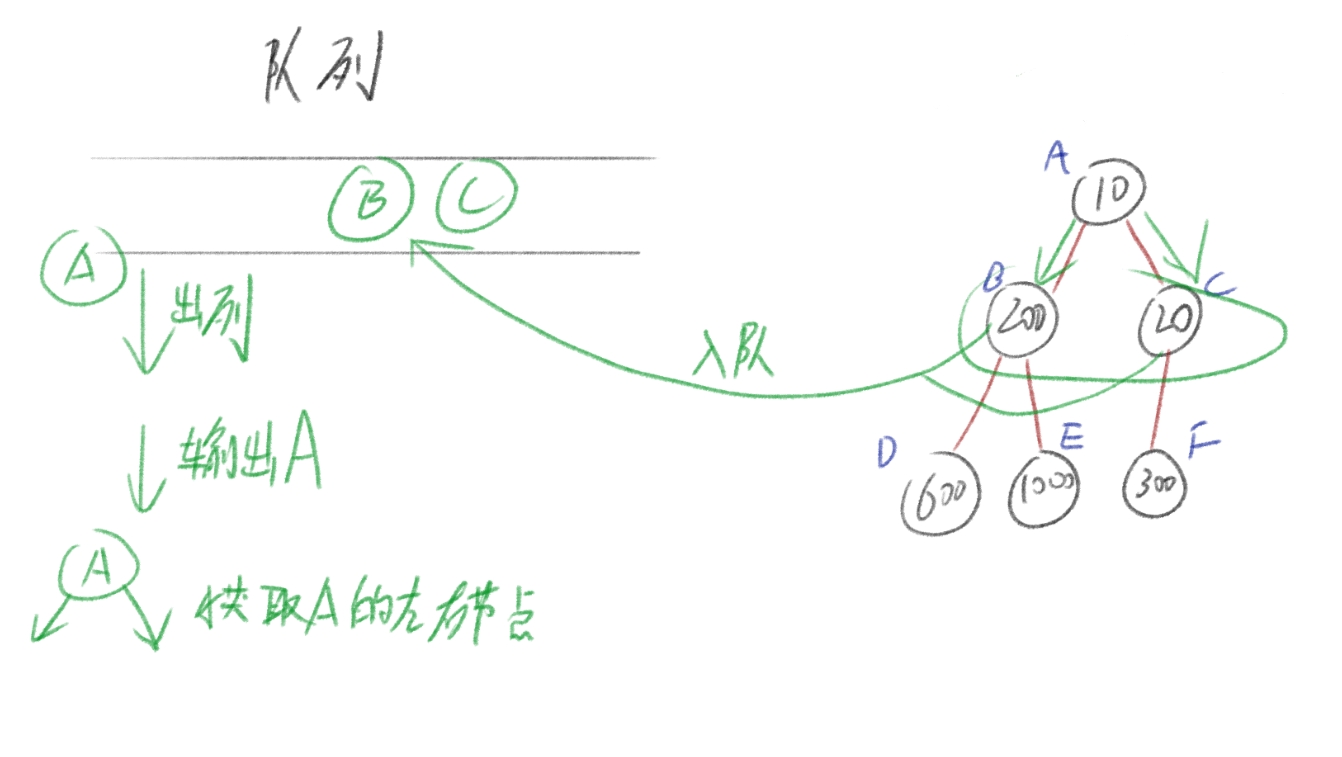 队列
B C
A
出列
输出A
A
获取A的左右节点
入队
A
10
B
200
C
20
D
E
F
600
1000
300